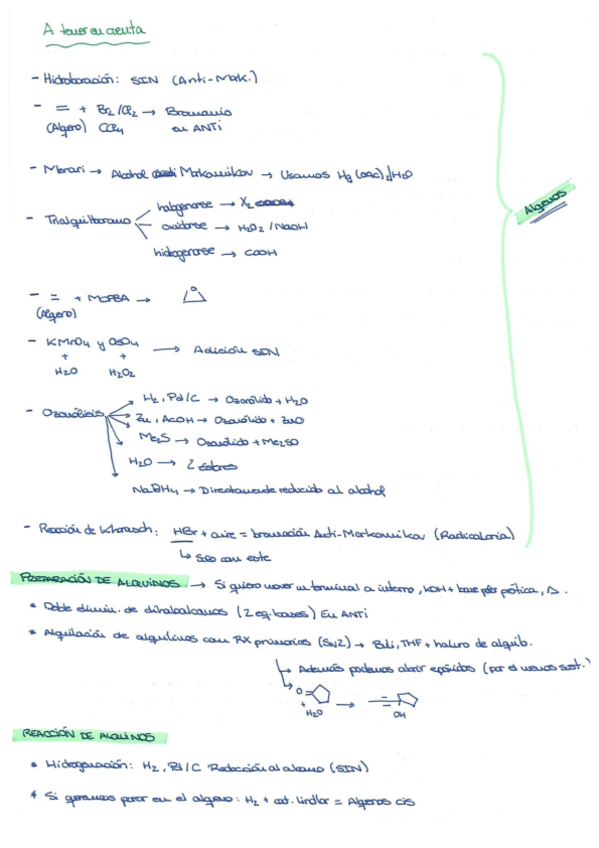 A tener en cuenta
- Hidroboración: SIN (Anti-Mak.)
- = + Br2/Cl2 → Bromonio
(Algeno) CCl4 en ANTI
- Mercuri → Alcohol Markovnikov → Usamos Hg(OAc)2/H2O
- Trialquilborano
halogenarse → X2
oxidarse → H2O2/NaOH
hidrogenarse → COOH
Algenos
- = + MCPBA →
(Algeno)
- KMnO4 y OsO4 → Adición SIN
+ +
H2O H2O2
- Ozonólisis
H2, Pd/C → Ozonólido + H2O
Zn, AcOH → Ozonólido + ZnO
Me2S → Ozonólido + Me2SO
H2O → 2
NaBH4 → Directamente reducido al alcohol
- Reacción de Kharasch: HBr + aire = bromación Anti-Markovnikov (Radicalaria)
↳ Solo con este
PREPARACIÓN DE ALQUINOS → Si quiero mover un terminal a interno, KOH + base polar prótica, Δ.
* Doble elimin. de dihaloalcanos (2 eq. bases) En ANTI
* Alquilación de alquinos con RX primarios (SN2) → BuLi, THF + haluro de alquilo.
↳ Además podemos abrir epóxidos (por el menos sust.)
O=
+
H2O
→
OH
REACCIÓN DE ALQUINOS
* Hidrogenación: H2, Pd/C Reducción al alcano (SIN)
* Si queremos parar en el algeno: H2 + cat. Lindlar = Algenos cis